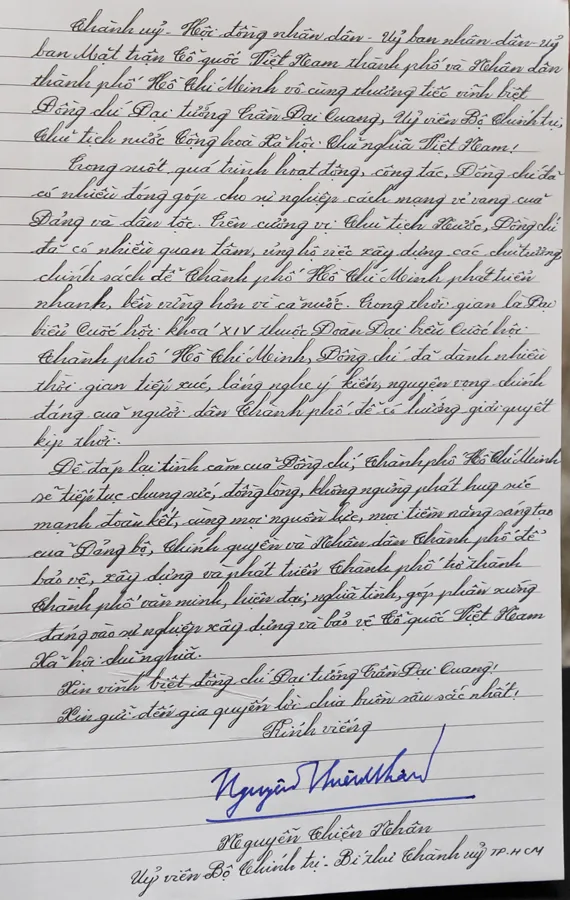 Thành uỷ - Hội đồng nhân dân - Uỷ ban nhân dân - Uỷ
ban Mặt trận Tổ quốc Việt Nam thành phố và Nhân dân
thành phố Hồ Chí Minh vô cùng thương tiếc vĩnh biệt
Đồng chí Đại tướng Trần Đại Quang, Uỷ viên Bộ Chính trị,
Chủ tịch nước Cộng hoà Xã hội Chủ nghĩa Việt Nam!
Trong suốt quá trình hoạt động, công tác, Đồng chí đã
có nhiều đóng góp cho sự nghiệp cách mạng vẻ vang của
Đảng và dân tộc. Trên cương vị Chủ tịch Nước, Đồng chí
đã có nhiều quan tâm, ủng hộ việc xây dựng các chủ trương,
chính sách để Thành phố Hồ Chí Minh phát triển
nhanh, bền vững hơn vì cả nước. Trong thời gian là Đại
biểu Quốc hội khoá XIV thuộc Đoàn Đại biểu Quốc hội
Thành phố Hồ Chí Minh, Đồng chí đã dành nhiều
thời gian tiếp xúc, lắng nghe ý kiến, nguyện vọng chính
đáng của người dân Thành phố để có hướng giải quyết
kịp thời.
Để đáp lại tình cảm của Đồng chí, Thành phố Hồ Chí Minh
sẽ tiếp tục chung sức, đồng lòng, không ngừng phát huy sức
mạnh đoàn kết, cùng mọi nguồn lực, mọi tiềm năng sáng tạo
của Đảng bộ, Chính quyền và Nhân dân Thành phố để
bảo vệ, xây dựng và phát triển Thành phố trở thành
Thành phố văn minh, hiện đại, nghĩa tình, góp phần xứng
đáng vào sự nghiệp xây dựng và bảo vệ Tổ quốc Việt Nam
Xã hội chủ nghĩa.
Xin vĩnh biệt đồng chí Đại tướng Trần Đại Quang!
Xin gửi đến gia quyến lời chia buồn sâu sắc nhất!
Kính viếng
Nguyễn Thiện Nhân
Nguyễn Thiện Nhân
Uỷ viên Bộ Chính trị - Bí thư Thành uỷ TP. HCM